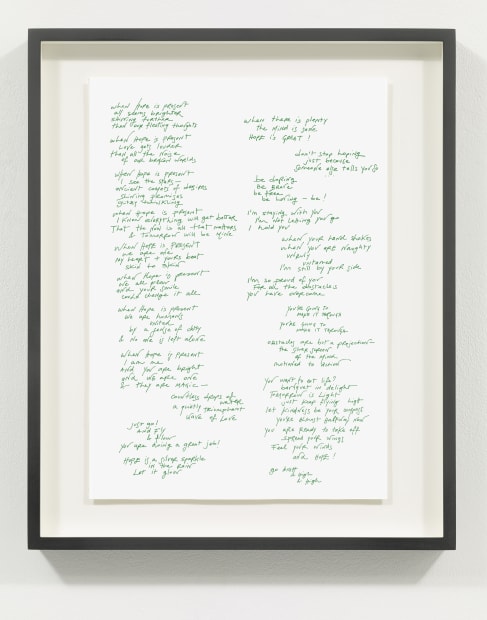 when Hope is present
all seems brighter
shining further
than our fleeting thoughts
when Hope is present
Love gets louder
than all the noise
of our broken worlds
when Hope is present
I see the stars —
ancient carpets of desires
shining
when Hope is present
I know everything will get better
That the Now is all that matters
& Tomorrow will be Mine
when Hope is present
we are one
My heart + yours beat
skin to
when Hope is present
all flow
and your smile
could change it all
when Hope is present
we are humans
united
by a sense of duty
& No one is left alone
when Hope is present
I am me
And you are bright
and we are one
& they are Music —
countless drops of
water
a quietly triumphant
wave of Love
just go!
and fly
& flow
you are doing a great job!
Hope is a silver sparkle
in the rain
Let it glow
when there is plenty
the Mind is sane
Hope is GREAT!
don't stop hoping
just because
someone else tells you to
be daring
be brave
be free
be loving — be!
I'm staying with you
I'm not letting you go
I hold you
when your hand shakes
when you are naughty
unruly
untamed
I'm still by your side
I'm so proud of you
For all the obstacles
you have overcome
you're going to
make it through
you're going to
make it through
obstacles are but a projection
the silver screen
of the mind
you want to eat life?
in delight
Tomorrow is Light
just keep flying high
let kindness be your compass
you're almost halfway now
you are ready to take off
spread your wings
Feel your winds
and HOPE!
go
& high
& high